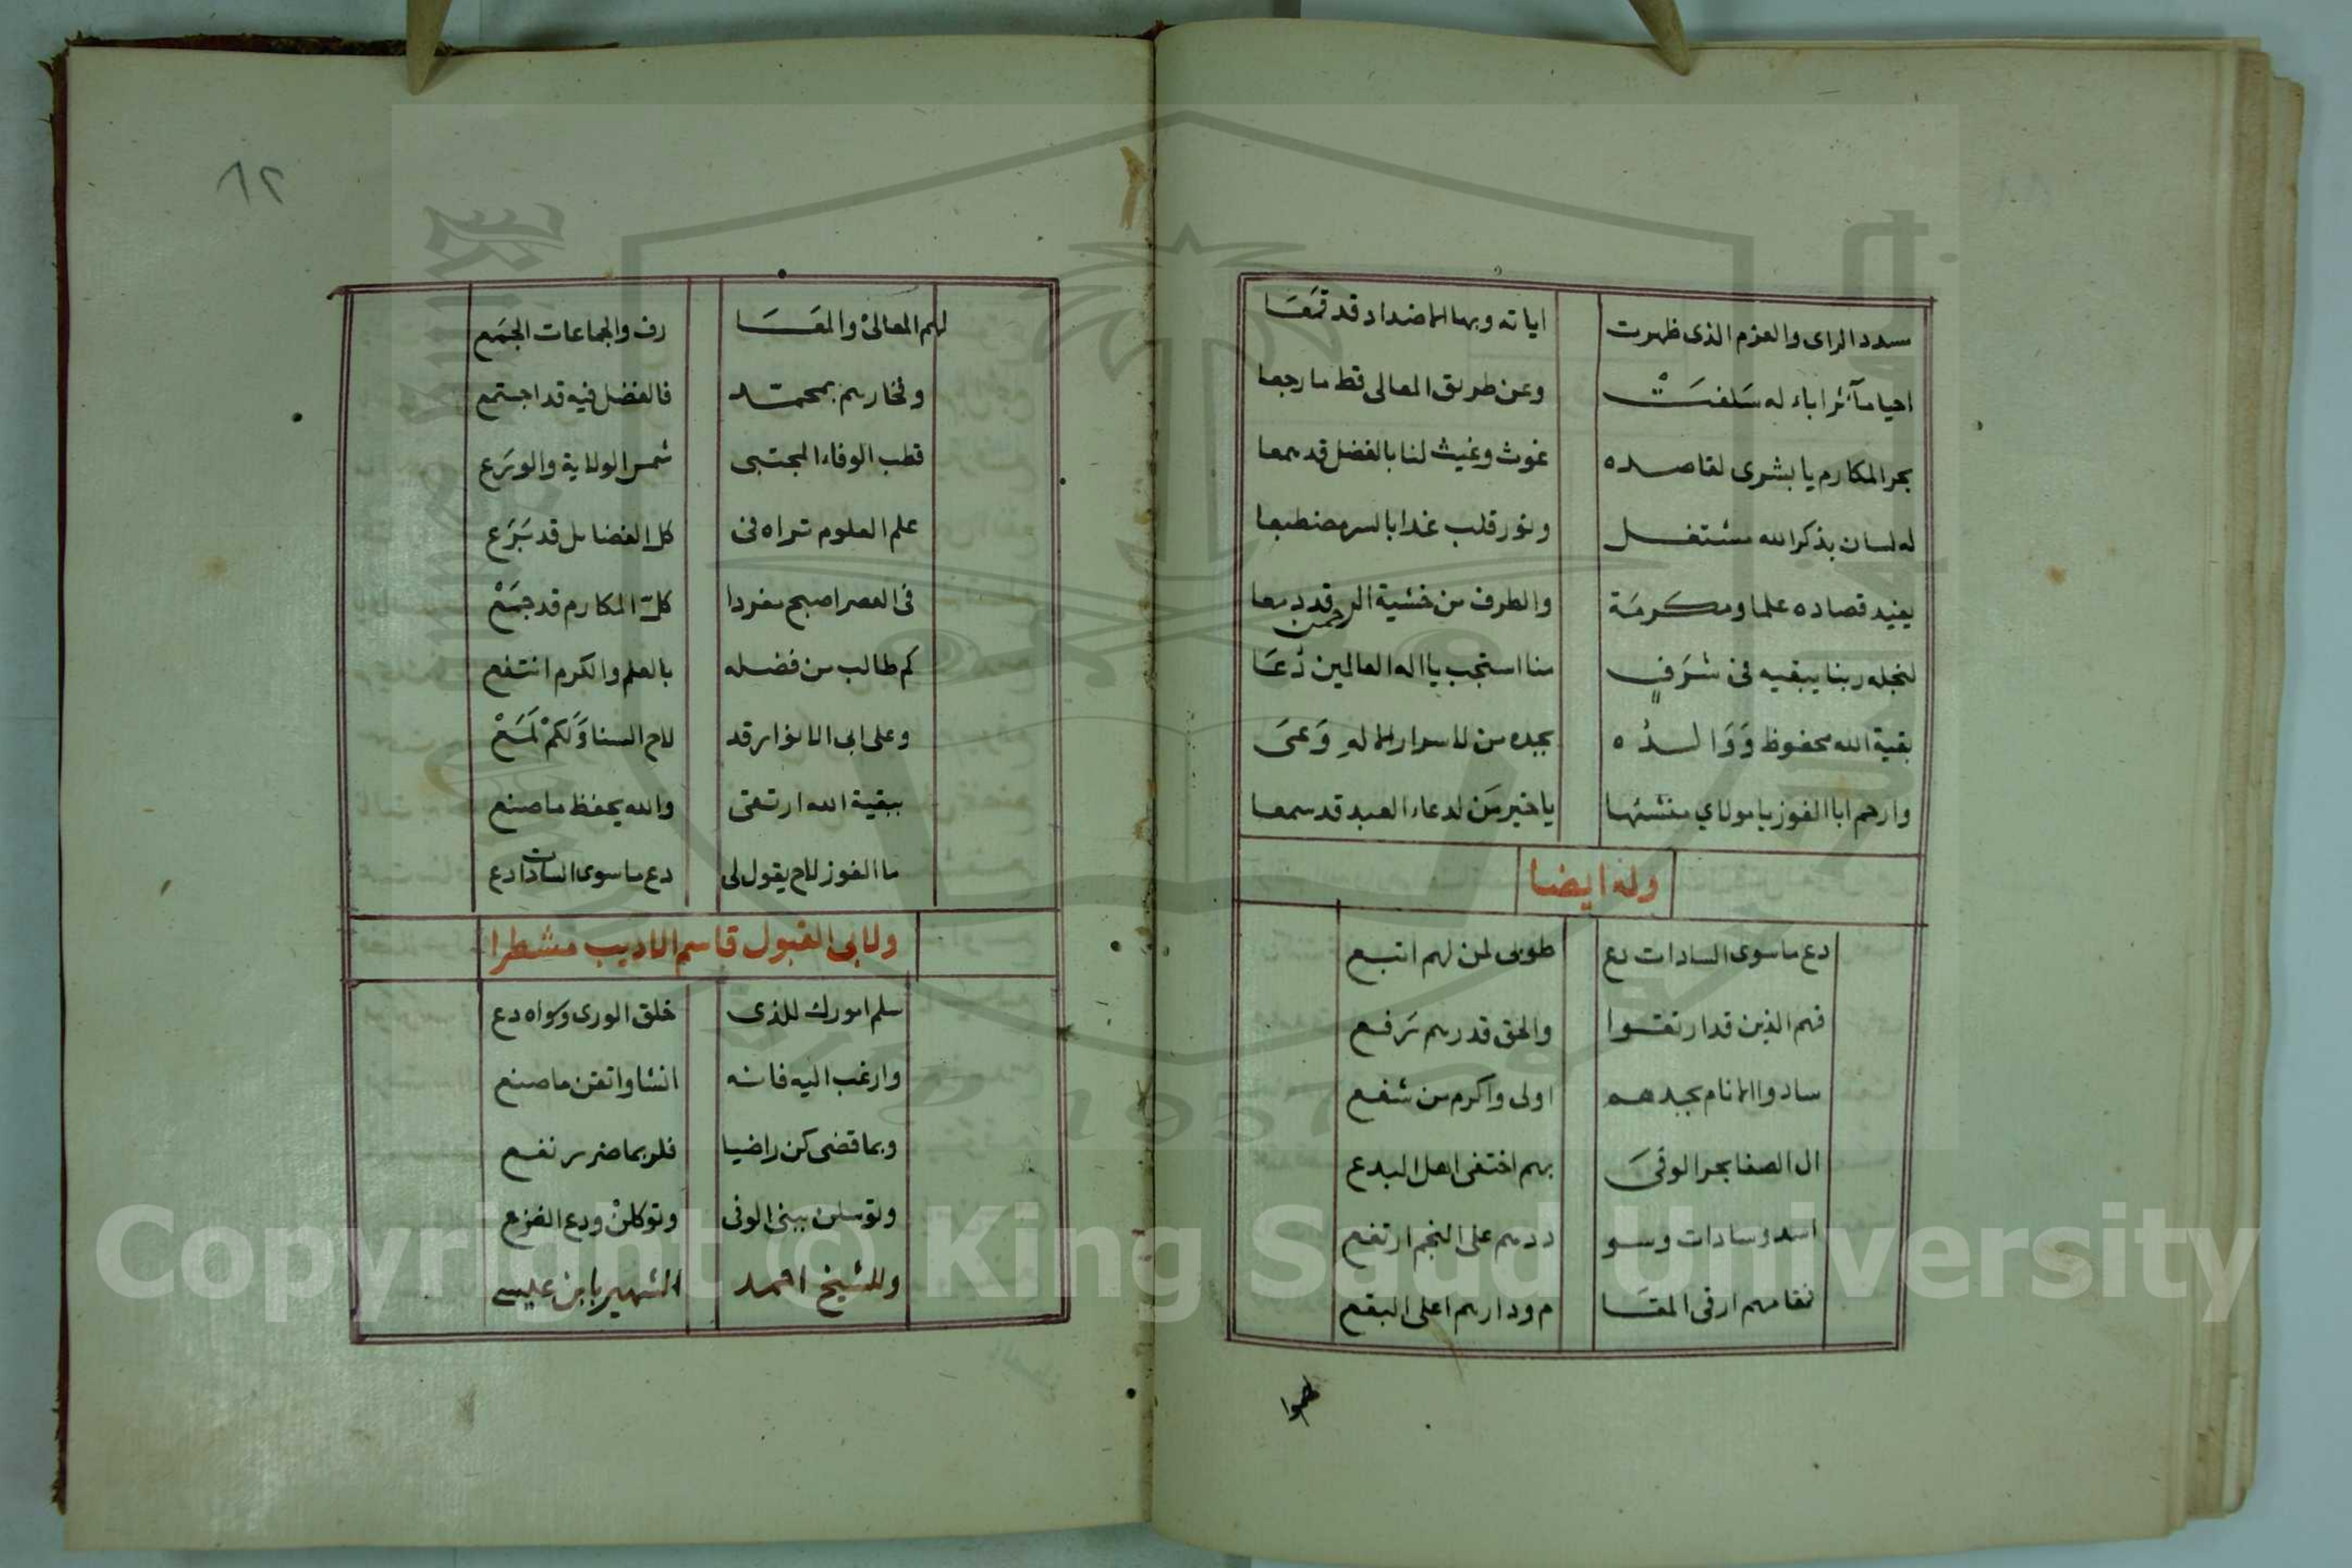 سدد الراى والعزم الذى ظهرت اياته وبها الاضداد قد قمعا
احيا مآثر اباء له سلفت وعن طريق المعالى قط ما رجعا
بحر المكارم يا بشرى لقاصده غوث وغيث لنا بالفضل قد همعا
له لسان بذكر الله مشتغل ونور قلب غدا بالسر منطبعا
يفيد قصاده علما ومكرمة والطرف من خشية الرحمن قد دمعا
لنجله ربنا يبقيه فى شرف منا استجب يا اله العالمين دعا
بقية الله محفوظ ووالده بجده من لاسرار الاله وعى
وارحم ابا الفوز يا مولاي منشئها يا خير من لدعاء العبد قد سمعا
وله ايضا
دع ما سوى السادات دع طوبى لمن لهم اتبع
فهم الذين قد ارتقوا والحق قدرهم رفع
سادوا الانام بجدهم اولى واكرم من شفع
ال الصفا بحر الوفى بهم اختفى اهل البدع
اسد وسادات وسو ددهم على النجم ارتفع
فمقامهم ارقى المقا م ودارهم اعلى البقع
٨٢
لهم المعالى والمعا رف والجماعات الجمع
وفخارهم بمحمد فالفضل فيه قد اجتمع
قطب الوفاء المجتبى شمس الولاية والورع
علم العلوم تراه فى كل الفضائل قد برع
فى العصر اصبح مفردا كل المكارم قد جمع
كم طالب من فضله بالعلم والكرم انتفع
وعلى ابى الانوار قد لاح السنا ولكم لمع
ببقية الله ارتقى والله يحفظ ما صنع
ما الفوز لاح يقول لى دع ما سوى السادات دع
ولابى القبول قاسم الاديب مشطرا
سلم امورك للذى خلق الورى وسواه دع
وارغب اليه فانه انشا واتقن ما صنع
وبما قضى كن راضيا فلربما ضرر نفع
وتوسلن ببنى الوفى وتوكلن ودع الفزع
وللشيخ احمد الشهير بابن عليسى
Copyright © King Saud University
1957